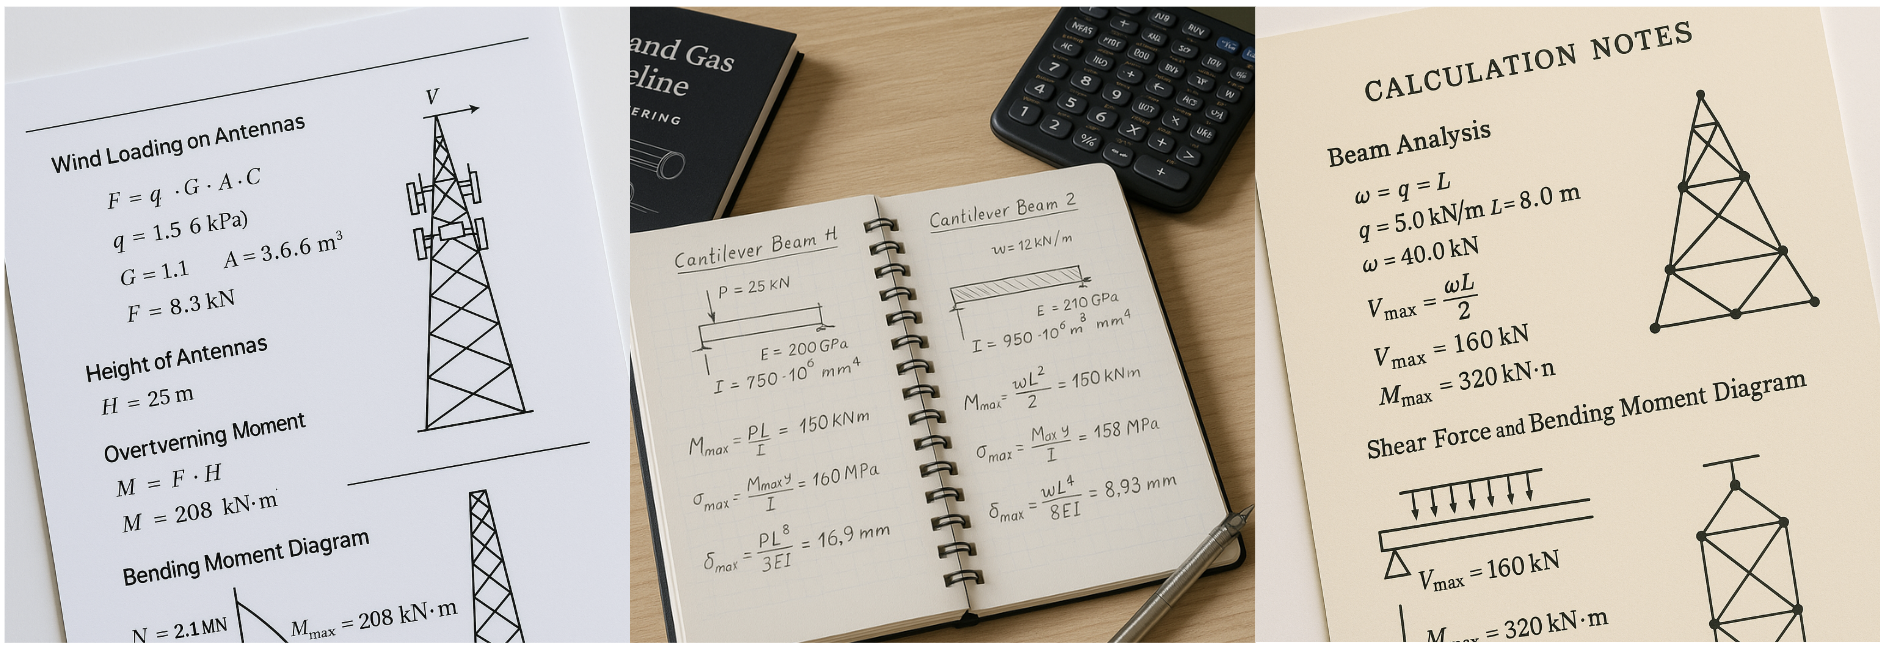 Wind Loading on Antennas
V
F = q · G · A · C
q = 1.5 6 kPa)
G = 1.1 A = 3.6.6 m³
F = 8.3 kN
Height of Antennas
H = 25 m
Overtverning Moment
M = F · H
M = 208 kN·m
Bending Moment Diagram
N = 2.1 MN
Mmax = 208 kN·m
and Gas
eline
ERING
7 8 9
4 5 6 ×
1 2 % +
Cantilever Beam H
P = 25 kN
E = 200 GPa
I = 750 · 10⁶ mm⁴
Mmax = PL/I = 150 kNm
σmax = Mmax y/I = 160 MPa
δmax = PL⁸/3EI = 16,9 mm
Cantilever Beam 2
w = 12 kN/m
E = 210 GPa
I = 950 · 10⁶ m³ mm⁴
Mmax = wL²/2 = 150 kNm
σmax = Max y/I = 158 MPa
δmax = wL⁴/8EI = 8,93 mm
CALCULATION NOTES
Beam Analysis
ω = q = L
q = 5.0 kN/m L = 8.0 m
ω = 40.0 kN
Vmax = ωL/2
Vmax = 160 kN
Mmax = 320 kN·n
Shear Force and Bending Moment Diagram
Vmax = 160 kN
Mmax = 320 kN·m